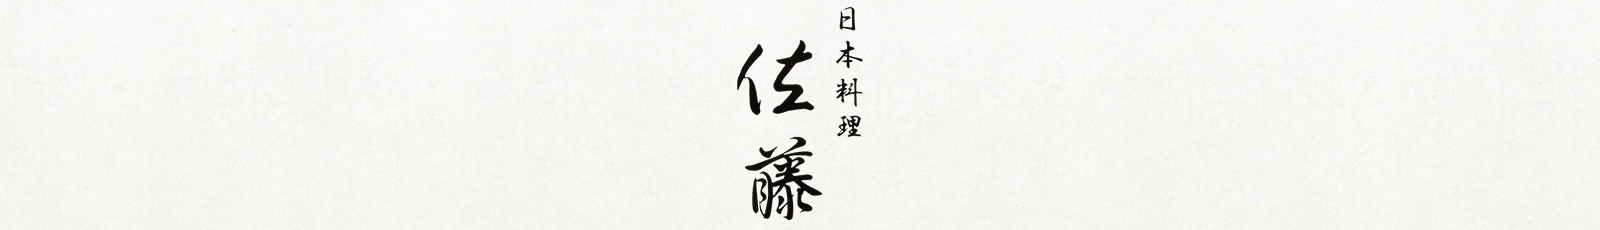 日本料理
佐藤